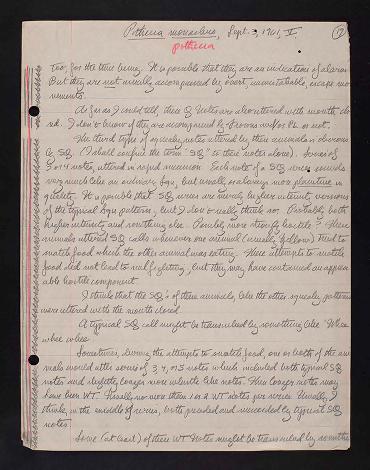 Pithecia monachus, Sept. 3, 1961, V. 7
pithecia
too, for the time being. It is possible that they are an indication of alarm.
But they are not usually accompanied by overt, unmistakable, escape mo-
vements.
As far as I could tell, these Q Notes are also uttered with mouth clo-
sed. I don't know if they are accompanied by or not.
The third type of squeaky notes uttered by these animals is obvious-
ly SQ (I shall confine the term "SQ" to these notes alone). Series of
3 or 4 notes, uttered in rapid succession. Each note of a SQ series sounds
very much like an ordinary Squ, but usually or always more plaintive in
quality. It is possible that SQ series are merely higher intensity versions
of the typical Squ pattern, but I don't really think so. Probably both
higher intensity and something else. Possibly more strongly hostile? These
animals uttered SQ calls whenever one animal (usually ) tried to
snatch food which the other animal was eating. These attempts to snatch
food did not lead to real fighting, but they may have contained an appreci-
able hostile component.
I think that the SQ's of these animals, like the other squeaky patterns
were uttered with the mouth closed.
A typical SQ call might be transcribed by something like "Whee
whee whee.
Sometimes, during the attempts to snatch food, one or both of the ani-
mals would utter series of 3, 4, or 5 notes which included both typical SQ
notes and slightly longer more whistle like notes. This longer notes may
have been WT. Usually no more than 1 or 2 WT notes per series. Usually, I
think, in the middle of series, both preceded and succeeded by typical SQ
notes.
Some (at least) of these WT Notes might be transcribed by something